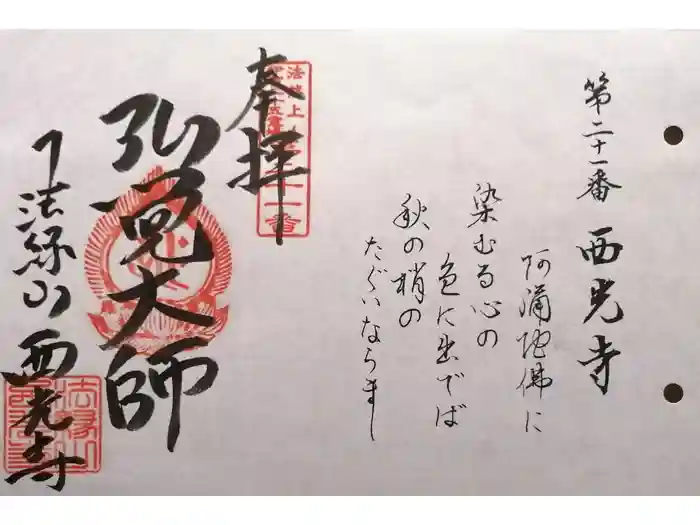 第二十一番 西光寺
阿彌陀佛に
染むる心の
色に出でば
秋の梢の
たぐいならまし
奉拝
弘覚大師
法縁山 西光寺